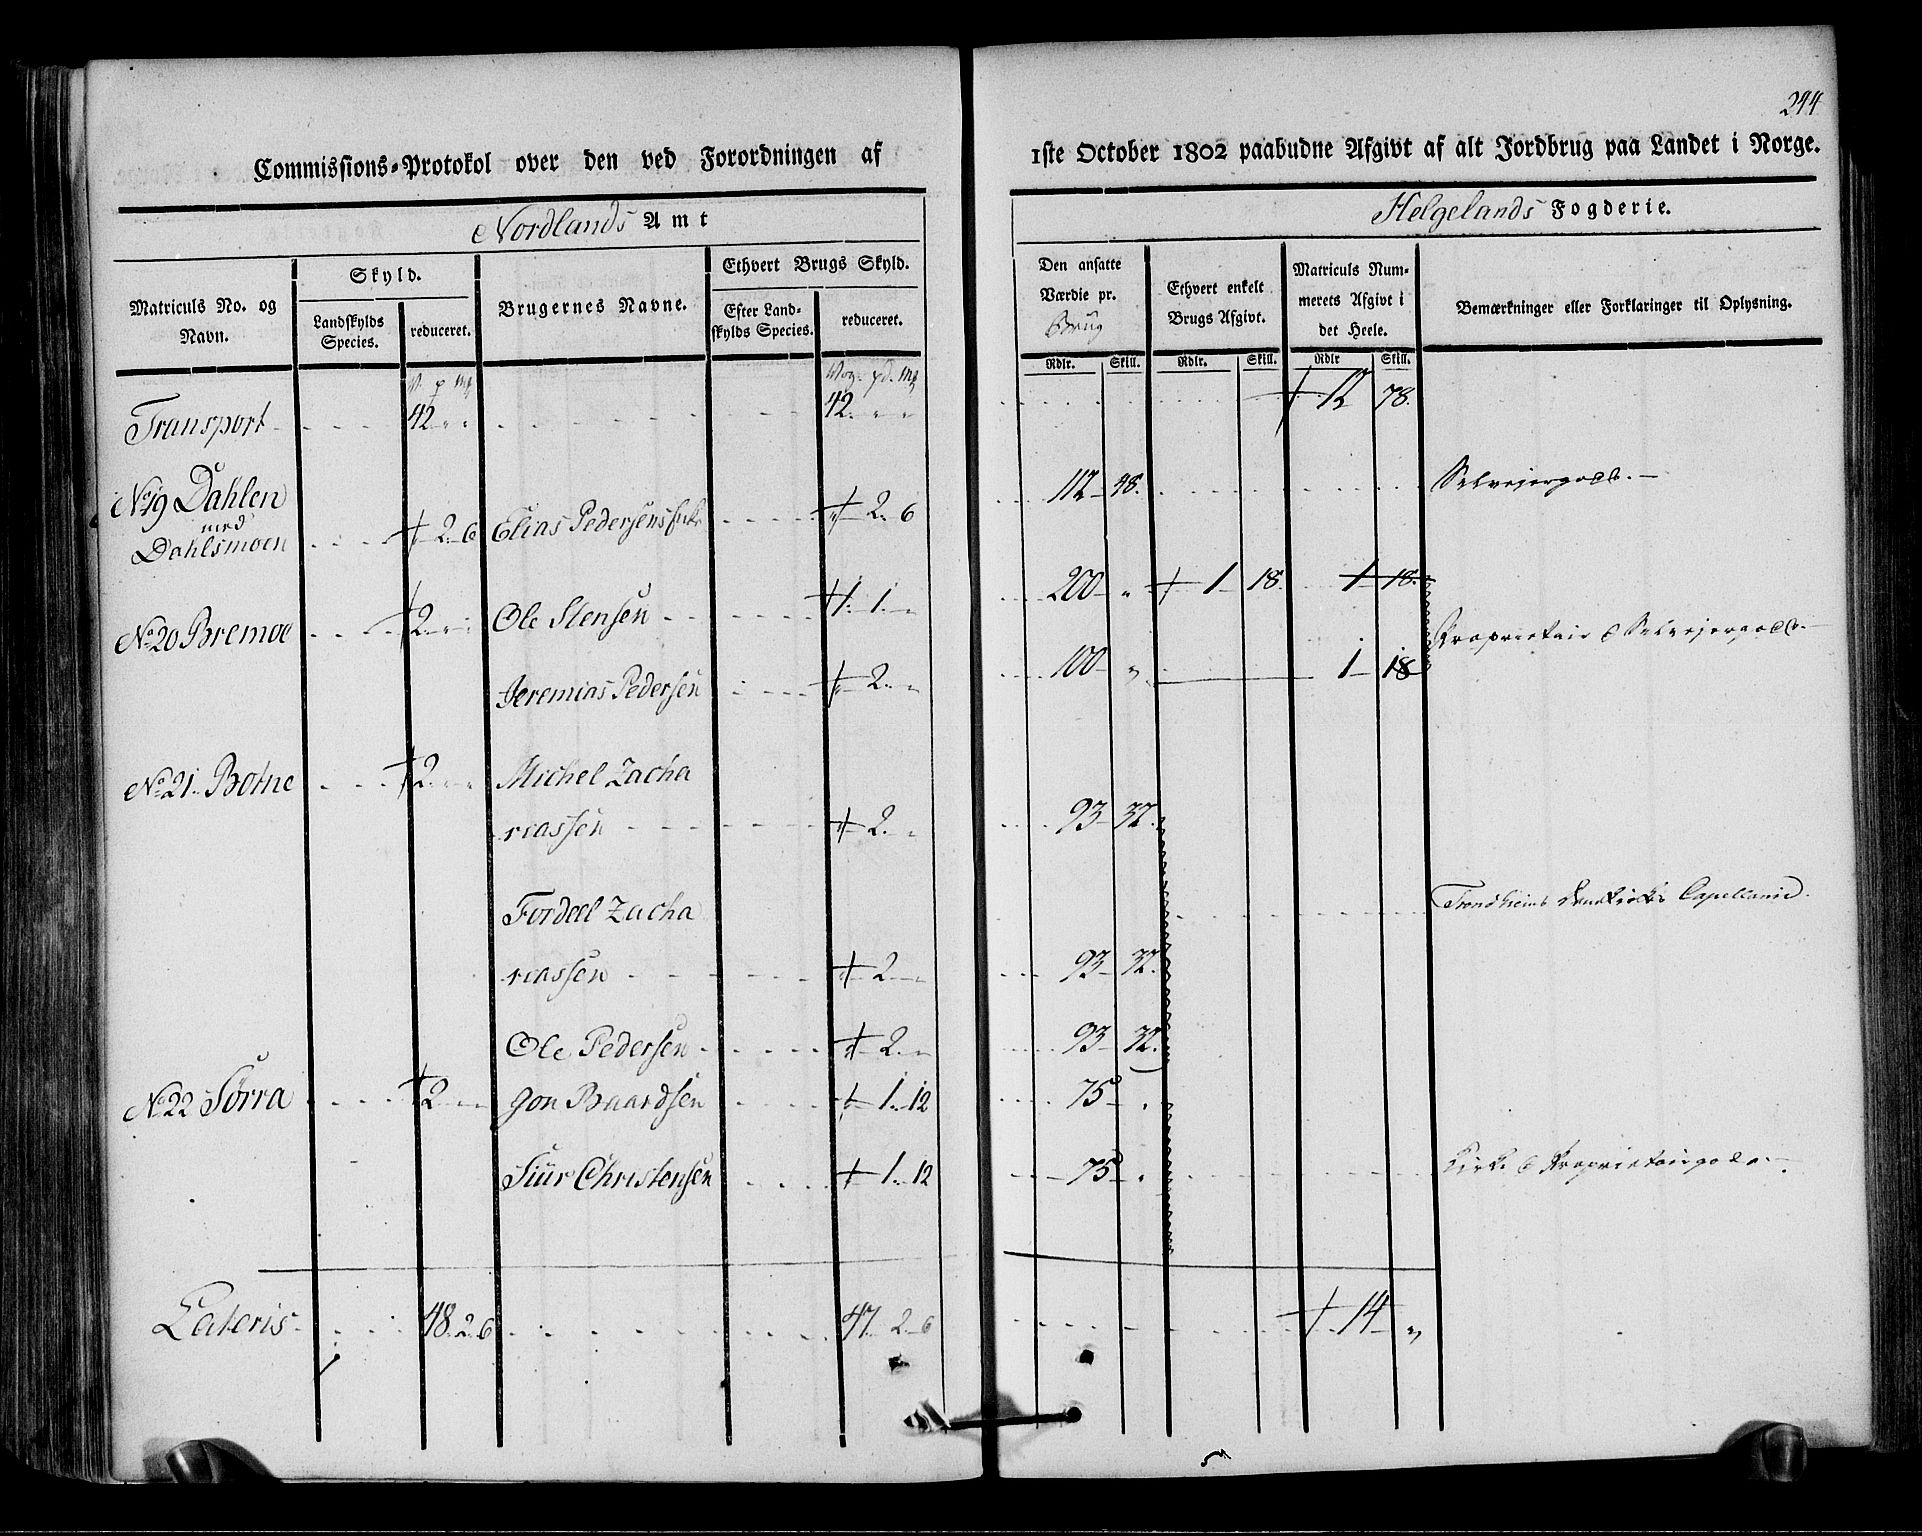 244
Commissions-Protokol over den ved Forordningen af
1ste October 1802 paabudne Afgivt af alt Jordbrug paa Landet i Norge.
Nordlands Amt
Helgelands Fogderie.
Matriculs No. og Navn.
Skyld.
Landskylds Species.
reduceret.
Brugernes Navne.
Ethvert Brugs Skyld.
Efter Landskylds Species.
reduceret.
Den ansatte Værdie pr. Brug
Ethvert enkelt Brugs Afgivt.
Matriculs Nummerets Afgivt i det Heele.
Bemærkninger eller Forklaringer til Oplysning.
Rdlr. Skill. Rdlr. Skill. Rdlr Skill.
V. p mk Vog. pd. mk
Transport 42 " " 42. " " 12 78.
No 19 Dahlen
med
Dahlsmoen 2 6 Elias Pedersens 2. 6 112 48. Selvejergods.
No 20 Bremoe 2 " Ole Stensen 1. 1. " 200 " 1 18 1 18.
Proprietair & Selvejergods.
Jeremias Pedersen 2. " 100 " 1 18
No 21. Botne 2 " Michel Zacha
riassen 2. " 93 32.
Fordeel Zacha
Trondhiems Capellanie.
riassen 2 " 93 32.
Ole Pedersen 2. " 93 32.
No 22 Sørra 2 Jon Baardsen 1. 12 75 "
Siur Christensen 1. 12 75 " Kirke & Proprietairgods.
Lateris 48. 2. 6 47. 2. 6 14 "